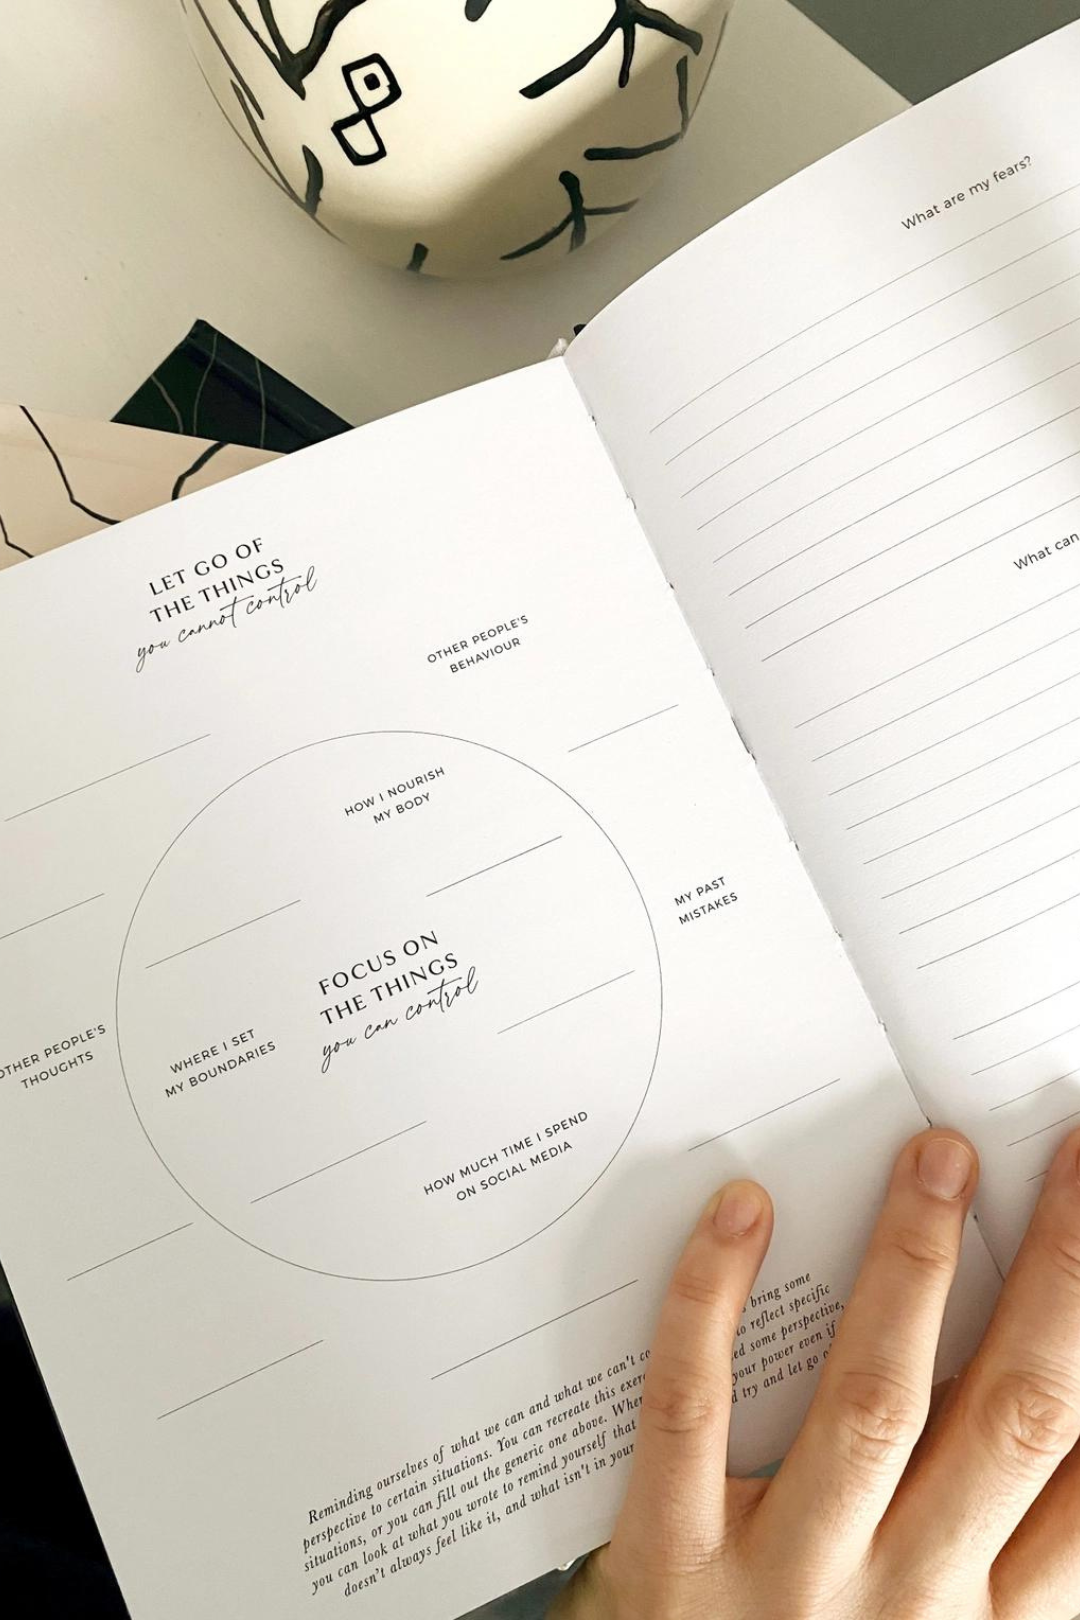 LET GO OF
THE THINGS
you cannot control
OTHER PEOPLE'S
BEHAVIOUR
HOW I NOURISH
MY BODY
MY PAST
MISTAKES
FOCUS ON
THE THINGS
you can control
OTHER PEOPLE'S
THOUGHTS
WHERE I SET
MY BOUNDARIES
HOW MUCH TIME I SPEND
ON SOCIAL MEDIA
Reminding ourselves of what we can and what we can't bring some
perspective to certain situations. You can recreate this to reflect specific
situations, or you can fill out the generic one above. some perspective,
you can look at what you wrote to remind yourself that your power even if
doesn't always feel like it, and what isn't in your try and let go
What are my fears?
What can